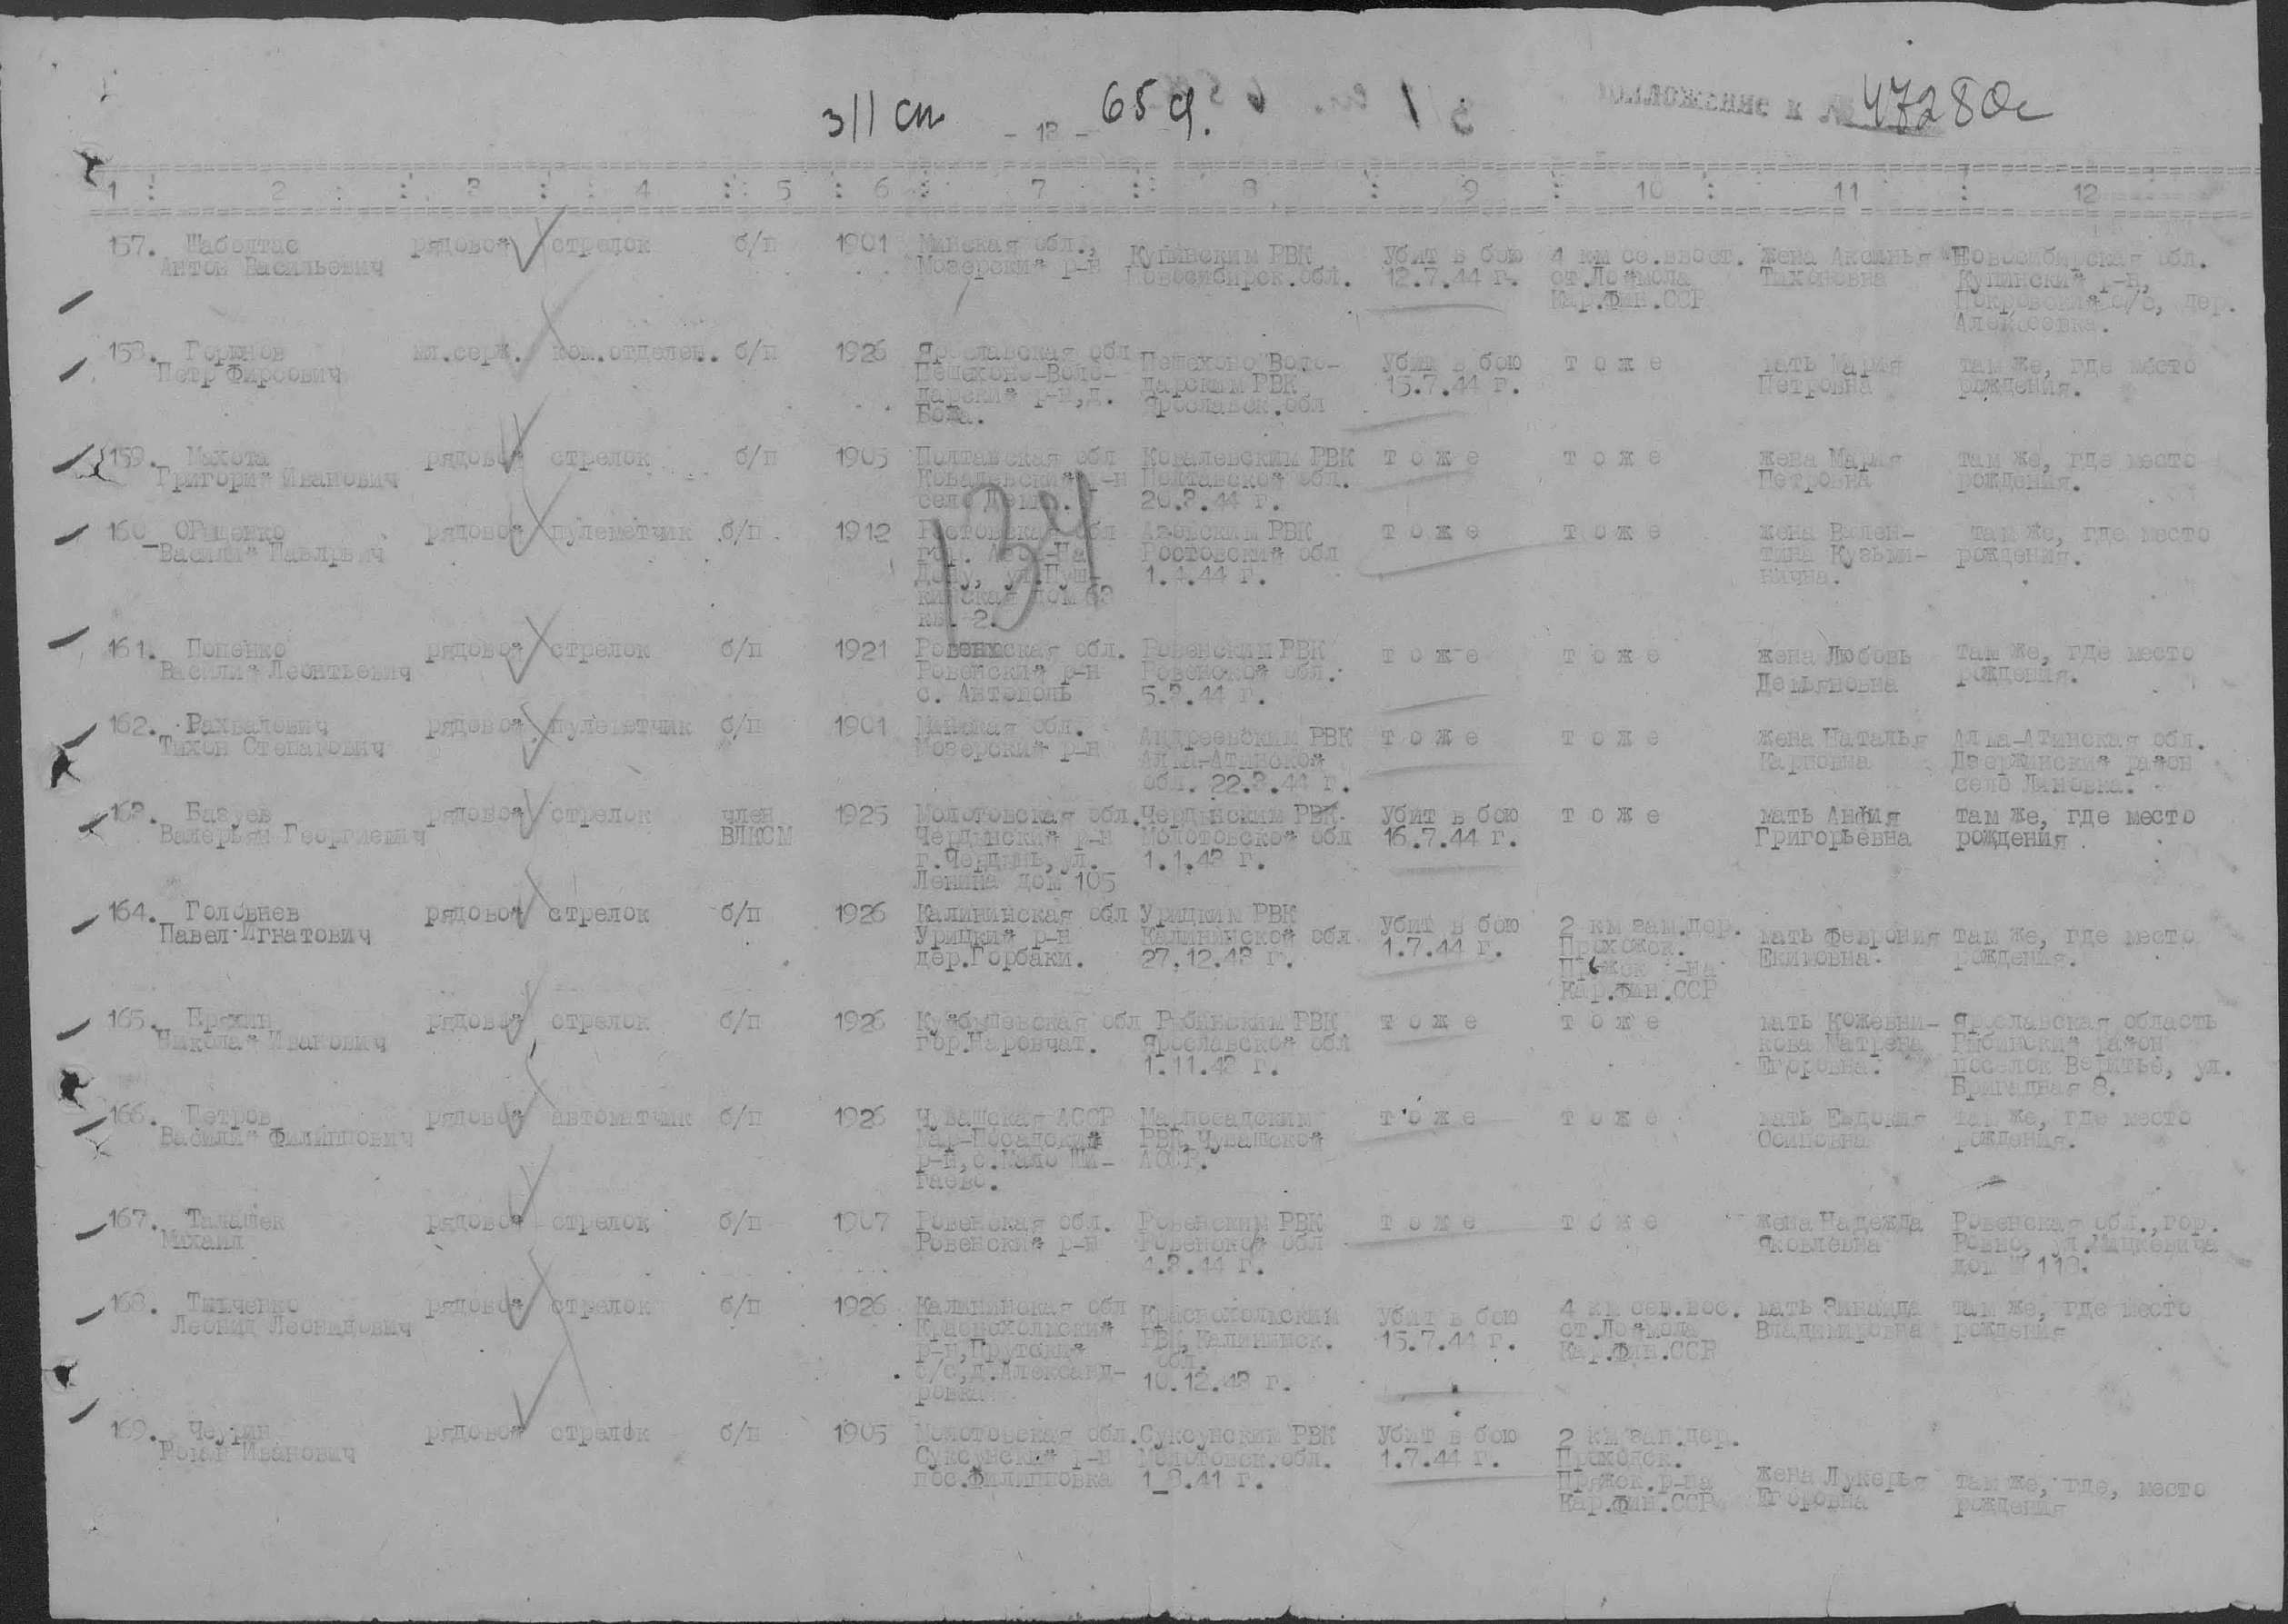 311 сп - 13 - 65 д. Приложение к № 47280с
1 : 2 : 3 : 4 : 5 : 6 : 7 : 8 : 9 : 10 : 11 : 12
157. Шаболтас рядовой стрелок б/п 1901 Минская обл., Купинским РВК Убит в бою 4 км се.ввост. жена Аксинья Новосибирская обл.
Антон Васильевич Мозерский р-н Новосибирск.обл. 12.7.44 г. от.Лоймола Тихоновна Купинский р-н,
Кар.Фин.ССР Покровский с/с, дер.
Алексеевка.
158. Горюнов мл.серж. ком.отделен. б/п 1926 Ярославская обл Пошехоно-Воло- Убит в бою т о ж е мать Мария там же, где место
Петр Фирсович Пошехоно-Воло- дарским РВК 15.7.44 г. Петровна рождения.
дарский р-н,д. Ярославск.обл
159. Махота рядовой стрелок б/п 1905 Полтавская обл Ковалевским РВК т о ж е т о ж е жена Мария там же, где место
Григорий Иванович Ковалевский р-н Полтавской обл. Петровна рождения.
село 20.3.44 г.
134
160 рядовой пулеметчик б/п 1912 Ростовская обл Азовским РВК т о ж е т о ж е жена Вален- там же, где место
Василий Павлрвич гор. Азов-На Ростовский обл тина Кузьми- рождения.
Дону, ул.Пуш- 1.4.44 г. нична.
кинская дом 63
кв. 2.
161. Попенко рядовой стрелок б/п 1921 Ровенская обл. Ровенским РВК т о ж е т о ж е жена Любовь там же, где место
Василий Леонтьевич Ровенский р-н Ровенской обл. Демьяновна рождения.
с. Антополь 5.3.44 г.
162. Рахвалович рядовой пулеметчик б/п 1901 Минская обл. Андреевским РВК т о ж е т о ж е жена Наталья Алма-Атинская обл.
Тихон Степанович Мозерский р-н Алма-Атинской Карповна Дзержинский район
обл. 22.3.44 г. село
163. Багуев рядовой стрелок член 1925 Молотовская обл. Чердынским РВК Убит в бою т о ж е мать Анфия там же, где место
Валерьян Георгиевич ВЛКСМ Чердынский р-н Молотовской обл 16.7.44 г. Григорьевна рождения
г.Чердынь,ул. 1.1.43 г.
Ленина дом 105
164. Головнев рядовой стрелок б/п 1926 Калининская обл Урицким РВК Убит в бою 2 км зап.дер. мать Феврония там же, где место
Павел Игнатович Урицкий р-н Калининской обл 1.7.44 г. Прохожок. Екимовна. рождения.
дер.Горбаки. 27.12.43 г. Пряжск -на
Кар.Фин.ССР
165. Еряхин рядовой стрелок б/п 1926 Куйбышевская обл Рыбинским РВК т о ж е т о ж е мать Кожевни- Ярославская область
Николай Иванович гор.Наровчат. Ярославской обл кова Матрена Рыбинский район
1.11.43 г. Егоровна. поселок Веретье, ул.
Бригадная 8.
166. Петров рядовой автоматчик б/п 1926 Чувашская АССР Марпосадским т о ж е т о ж е мать Евдокия там же, где место
Василий Филиппович Мар-Посадский РВК,Чувашской Осиповна рождения.
р-н,с.Мало Ши- АССР.
гаево.
167. Талашек рядовой стрелок б/п 1907 Ровенская обл. Ровенским РВК т о ж е т о ж е жена Надежда Ровенская обл.,гор.
Михаил Ровенский р-н Ровенской обл Яковлевна Ровно, ул.Мицкевича
4.3.44 г. дом № 119.
168. Тытченко рядовой стрелок б/п 1926 Калининская обл Краснохолмским Убит в бою 4 км сев.вос. мать Зинаида там же, где место
Леонид Леонидович Краснохолмский РВК,Калининск. 15.7.44 г. от.Лоймола Владимировна рождения
р-н,Прутский обл. Кар.Фин.ССР
с/с,д.Александ- 10.12.43 г.
ровка
169. Чеурин рядовой стрелок б/п 1905 Молотовская обл. Суксунским РВК Убит в бою 2 км зап.дер.
Роман Иванович Суксунский р-н Молотовск.обл. 1.7.44 г. Прохожок.
пос.Филипповка 1_8.41 г. Пряжск.р-на жена Лукерья там же, где, место
Кар.Фин.ССР Егоровна рождения